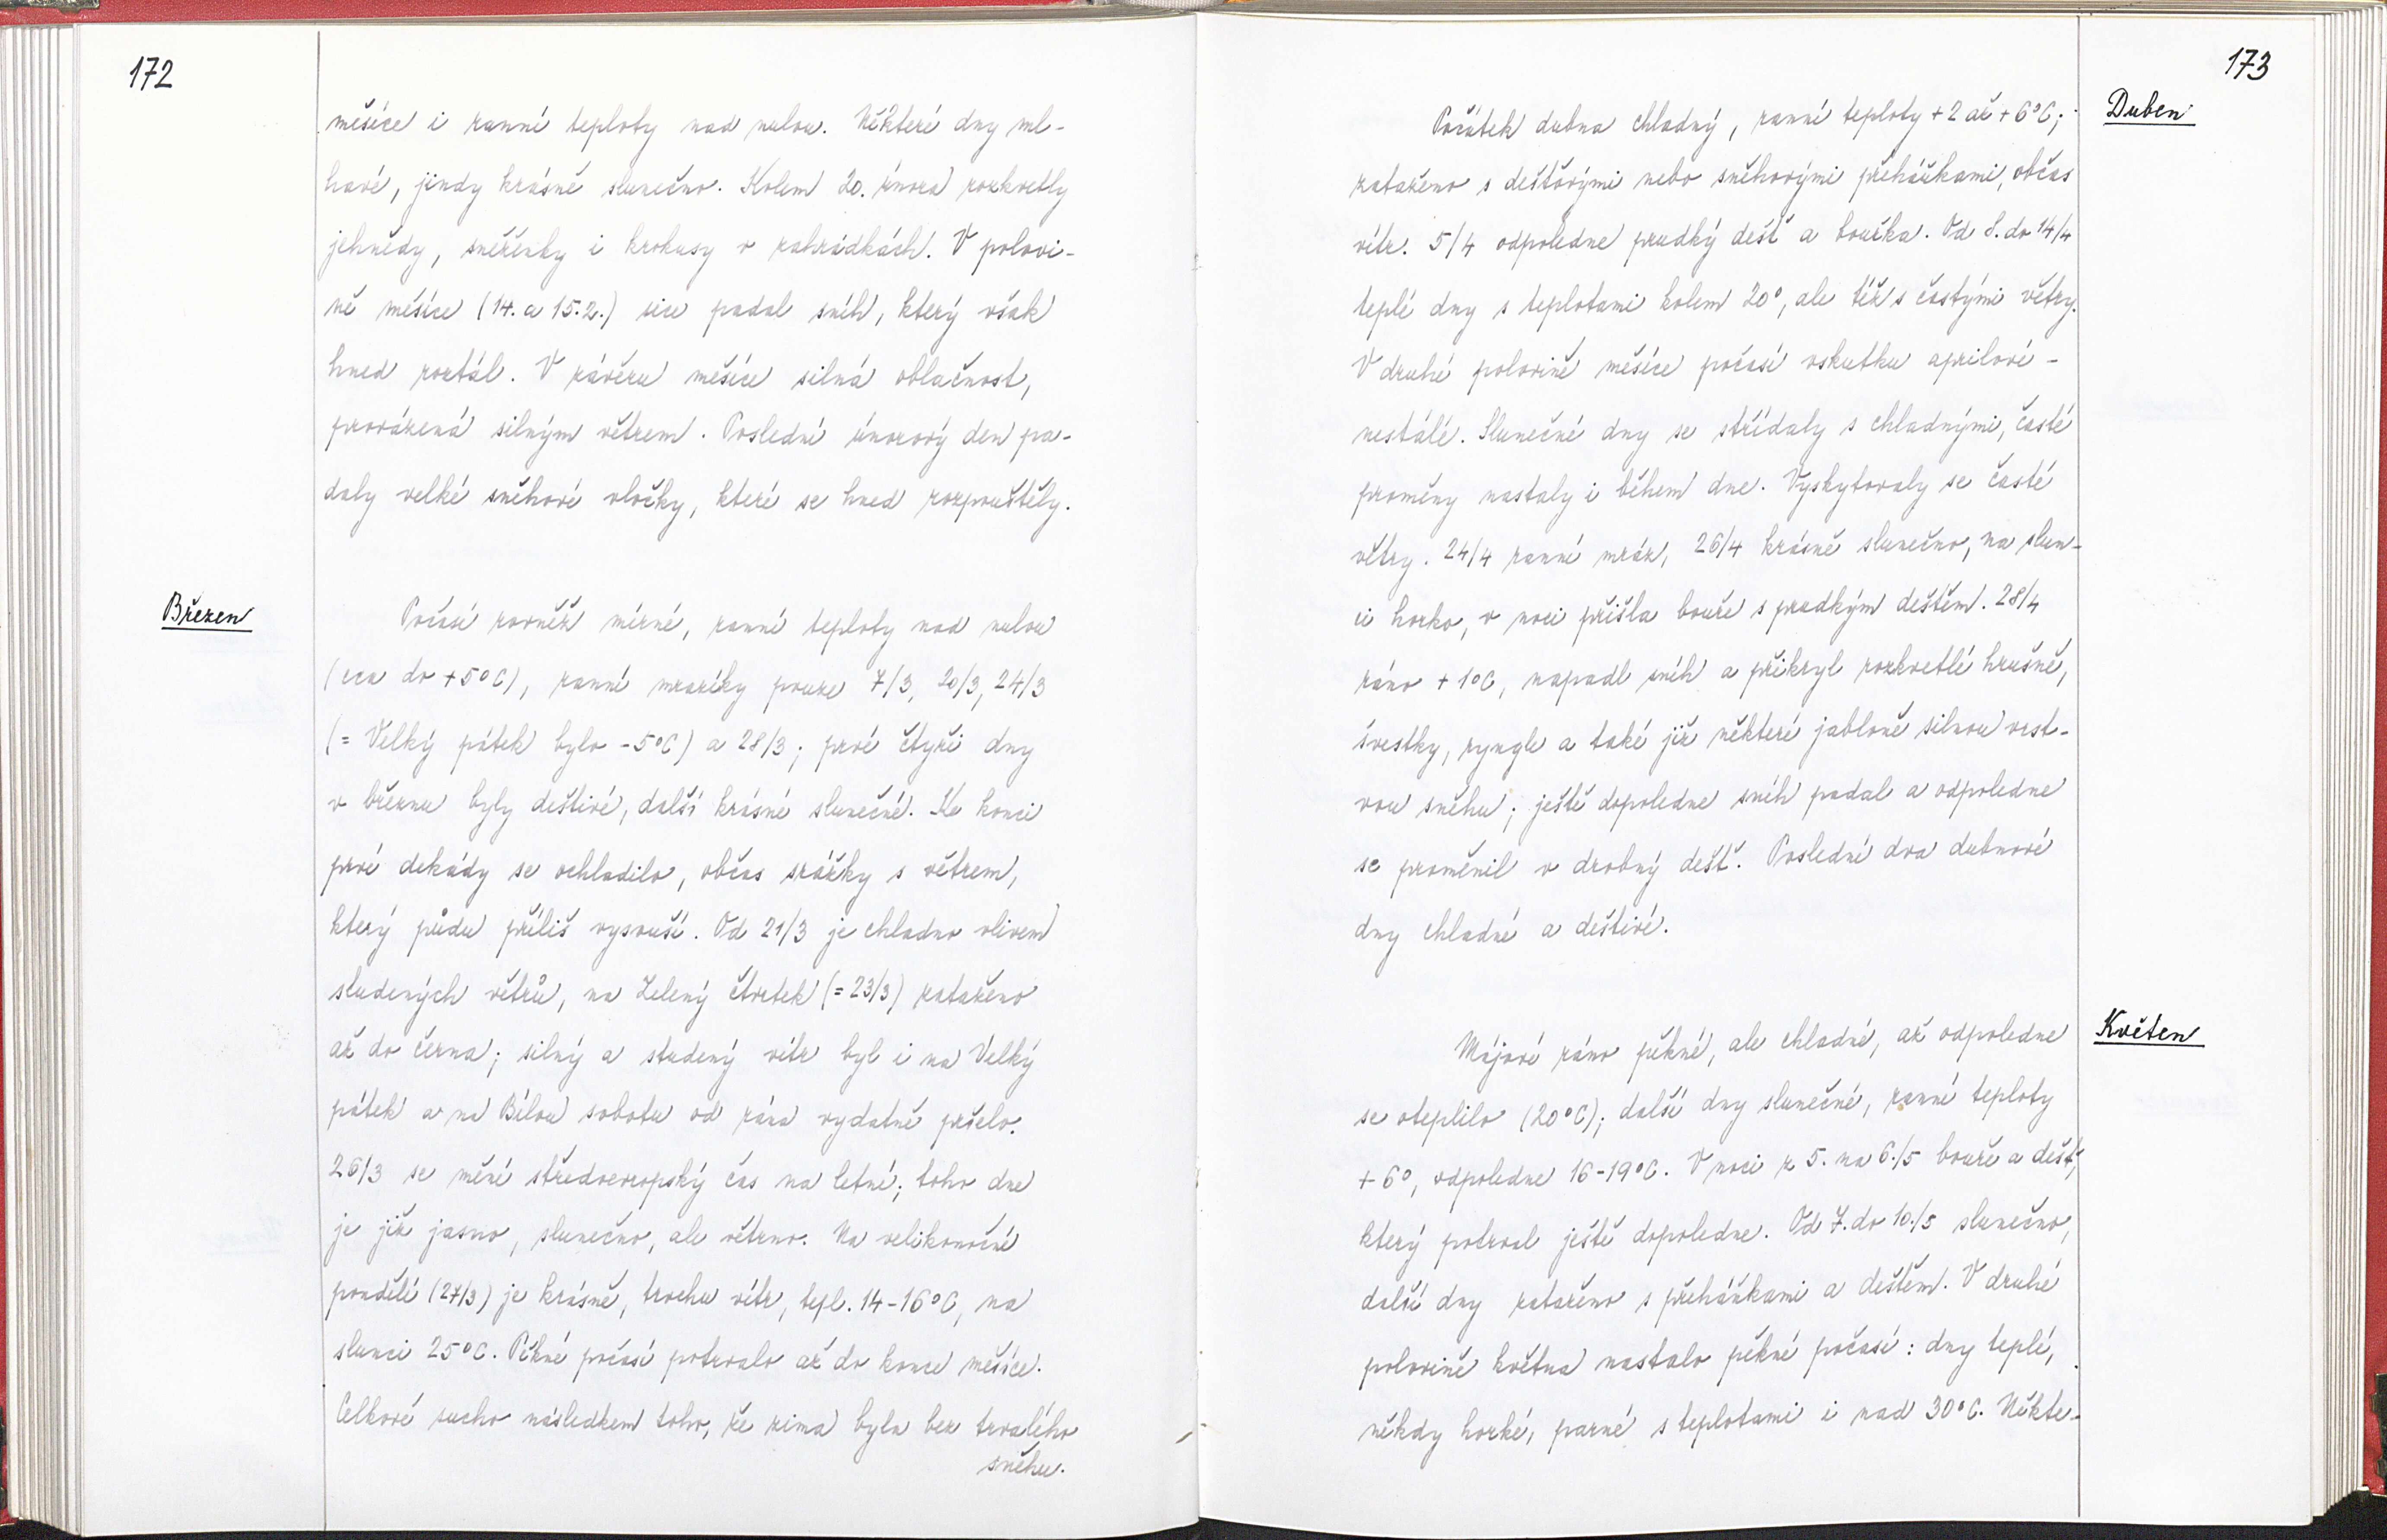 172
měsíce i ranní teploty nad nulou. Některé dny ml-
havé, jindy krásně slunečno. Kolem 20. února rozkvetly
jehnědy, sněženky i krokusy v zahrádkách. V polovi-
ně měsíce (14. a 15.2.) sice padal sníh, který však
hned roztál. V závěru měsíce silná oblačnost,
provázená silným větrem. Poslední únorový den pa-
daly velké sněhové vločky, které se hned rozpouštěly.
Březen
Počasí rovněž mírné, ranní teploty nad nulou
(cca do +5°C), ranní mrazíky pouze 7/3, 20/3, 24/3
(= Velký pátek bylo -5°C) a 28/3; prvé čtyři dny
v březnu byly deštivé, další krásné slunečné. Ke konci
prvé dekády se ochladilo, občas srážky s větrem,
který půdu příliš vysouší. Od 21/3 je chladno vlivem
studených větrů, na Zelený čtvrtek (= 23/3) zataženo
až do černa; silný a studený vítr byl i na Velký
pátek a na Bílou sobotu od rána vydatně pršelo.
26/3 se mění středoevropský čas na letní; toho dne
je již jasno, slunečno, ale větrno. Na velikonoční
pondělí (27/3) je krásně, trochu vítr, tepl. 14-16°C, na
slunci 25°C. Pěkné počasí potrvalo až do konce měsíce.
Celkové sucho následkem toho, že zima byla bez trvalého
sněhu.
173
Duben
Počátek dubna chladný, ranní teploty +2 až +6°C;
zataženo s dešťovými nebo sněhovými přeháňkami, občas
vítr. 5/4 odpoledne prudký déšť a bouřka. Od 8. do 14/4
teplé dny s teplotami kolem 20°, ale též s častými větry.
V druhé polovině měsíce počasí vskutku aprilové -
nestálé. Slunečné dny se střídaly s chladnými, časté
proměny nastaly i během dne. Vyskytovaly se časté
větry. 24/4 ranní mráz, 26/4 krásně slunečno, na slun-
ci horko, v noci přišla bouře s prudkým deštěm. 28/4
ráno +1°C, napadl sníh a přikryl rozkvetlé hrušně,
švestky, ryngle a také již některé jabloně silnou vrst-
vou sněhu; ještě dopoledne sníh padal a odpoledne
se proměnil v drobný déšť. Poslední dva dubnové
dny chladné a deštivé.
Květen
Májové ráno pěkné, ale chladné, až odpoledne
se oteplilo (20°C); další dny slunečné, ranní teploty
+6°, odpoledne 16-19°C. V noci z 5. na 6./5 bouře a déšť,
který potrval ještě dopoledne. Od 7. do 10./5 slunečno,
další dny zataženo s přeháňkami a deštěm. V druhé
polovině května nastalo pěkné počasí: dny teplé,
někdy horké, parné s teplotami i nad 30°C. Někte-